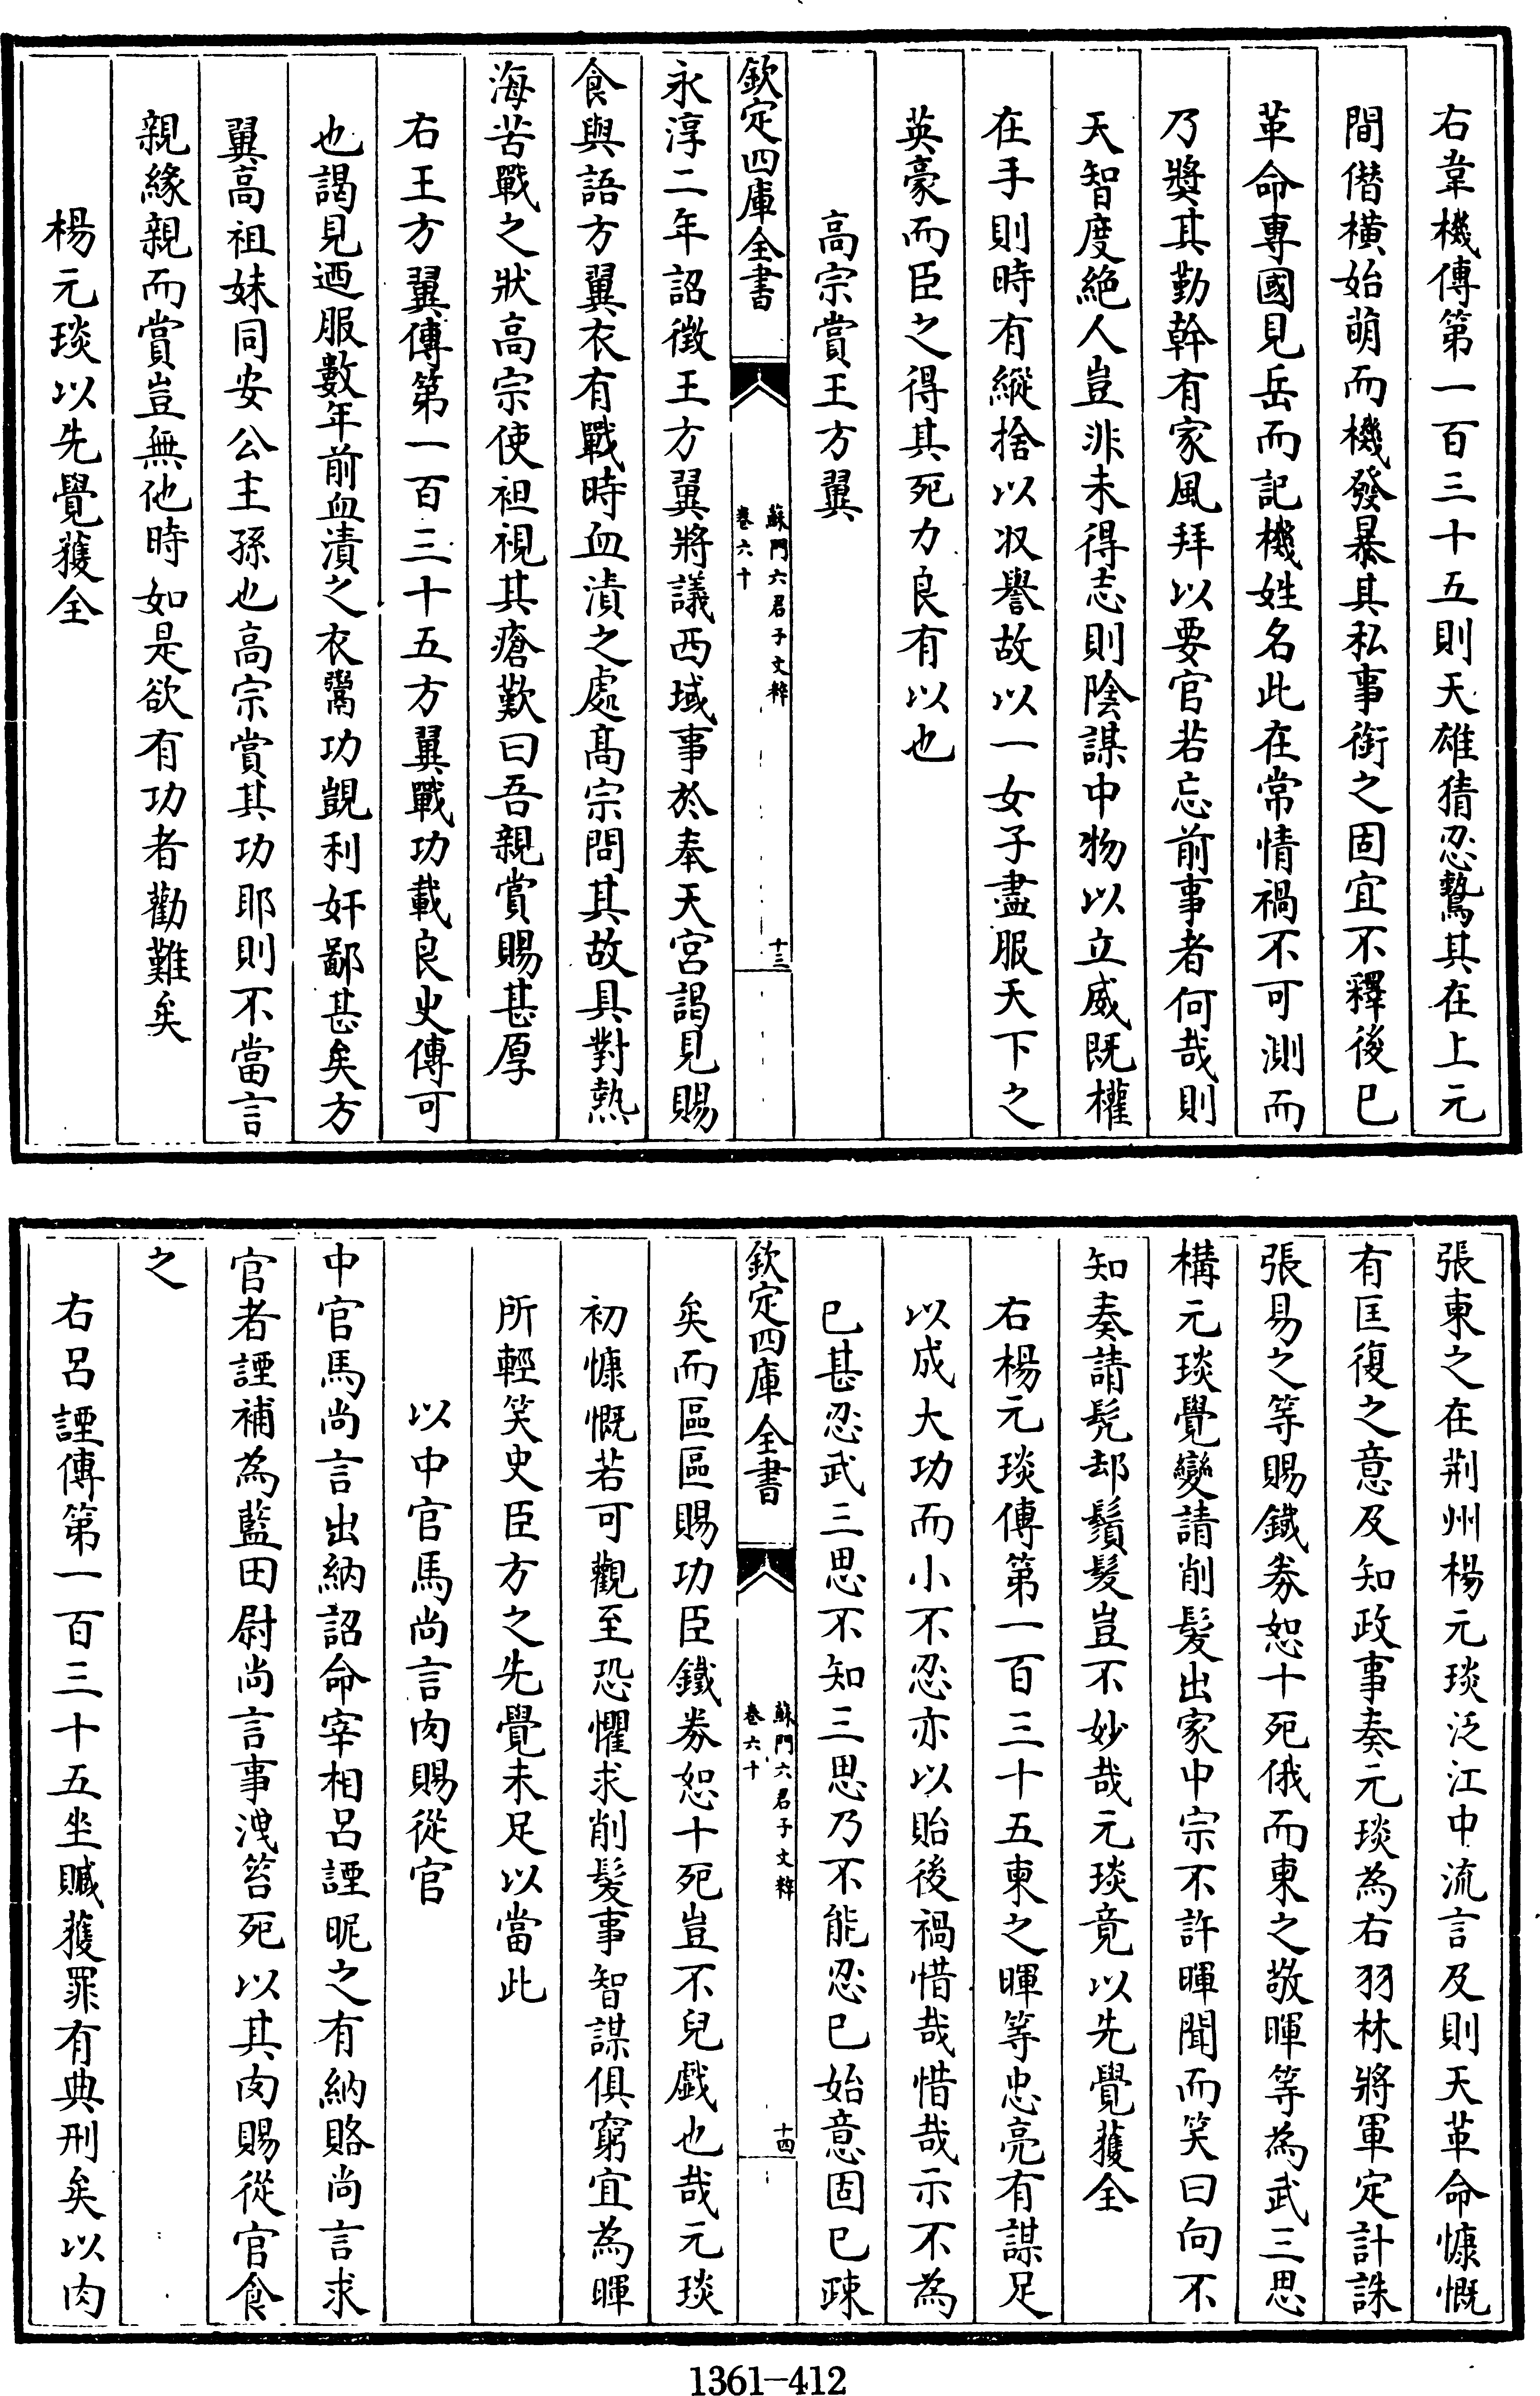 右韋機傳第一百三十五則天雄猜忍鷙其在上元
間僭橫始萌而機發暴其私事銜之固宜不釋後已
革命專國見岳而記機姓名此在常情禍不可測而
乃奬其勤幹有家風拜以要官若忘前事者何哉則
天智度絶人豈非未得志則陰謀中物以立威既權
在手則時有縱捨以収譽故以一女子盡服天下之
英豪而臣之得其死力良有以也
高宗賞王方翼
欽定四庫全書
蘇門六君子文粹
卷六十
十三
永淳二年詔徴王方翼將議西域事於奉天宮謁見賜
食與語方翼衣有戰時血漬之處髙宗問其故具對熱
海苦戰之狀高宗使袒視其瘡歎曰吾親賞賜甚厚
右王方翼傳第一百三十五方翼戰功載良史傳可
也謁見迺服數年前血漬之衣鬻功覬利奸鄙甚矣方
翼高祖妹同安公主孫也高宗賞其功耶則不當言
親緣親而賞豈無他時如是欲有功者勸難矣
楊元琰以先覺獲全
張東之在荆州楊元琰泛江中流言及則天革命慷慨
有匡復之意及知政事奏元琰為右羽林將軍定計誅
張易之等賜鐵券恕十死俄而東之敬暉等為武三思
構元琰覺變請削髪出家中宗不許暉聞而笑曰向不
知奏請髠却鬚髮豈不妙哉元琰竟以先覺獲全
右楊元琰傳第一百三十五東之暉等忠亮有謀足
以成大功而小不忍亦以貽後禍惜哉惜哉示不為
已甚忍武三思不知三思乃不能忍已始意固已疎
欽定四庫全書
蘇門六君子文粹
卷六十
十四
矣而區區賜功臣鐵券恕十死豈不兒戲也哉元琰
初慷慨若可觀至恐懼求削髪事智謀俱窮宜為暉
所輕笑史臣方之先覺未足以當此
以中官馬尚言肉賜從官
中官馬尚言出納詔命宰相呂諲昵之有納賂尚言求
官者諲補為藍田尉尚言事洩笞死以其肉賜從官食
之
右呂諲傳第一百三十五坐贓獲罪有典刑矣以肉
1361-412